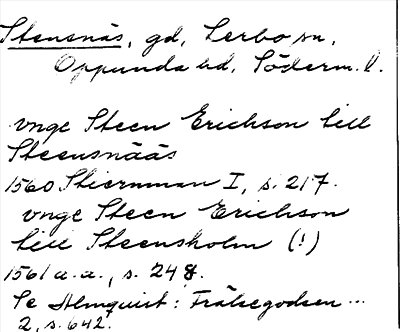 Stensnäs, gd, Lerbo sn,
Oppunda hd, Söderm. l.
vnge Steen Erichson till
Steensnääs
1560 Stiernman I, s. 217.
vnge Steen Erichson
till Steensholm (!)
1561 a.a., s. 248.
Se Almquist: Frälsegodsen...
2, s. 642.